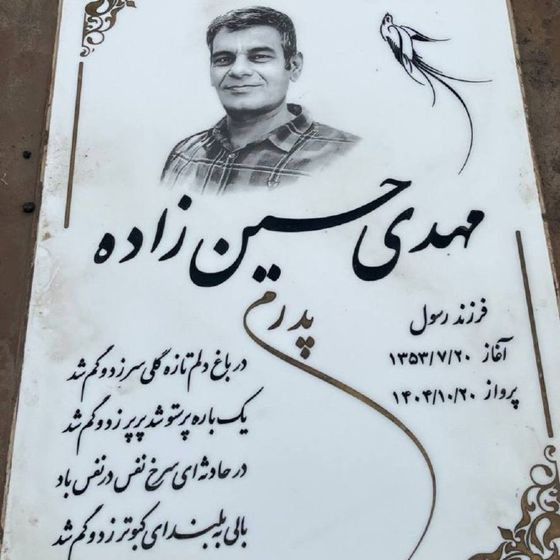 مهدی حسین زاده
پدرم
فرزند رسول
آغاز ۱۳۵۳/۷/۲۰
پرواز ۱۴۰۴/۱۰/۲۰
در باغ دلم تازه گلی سر زد و گم شد
یک باره پرستو شد پرپر زد و گم شد
در حادثه ای سرخ نفس در نفس باد
بالی به بلندای کبوتر زد و گم شد